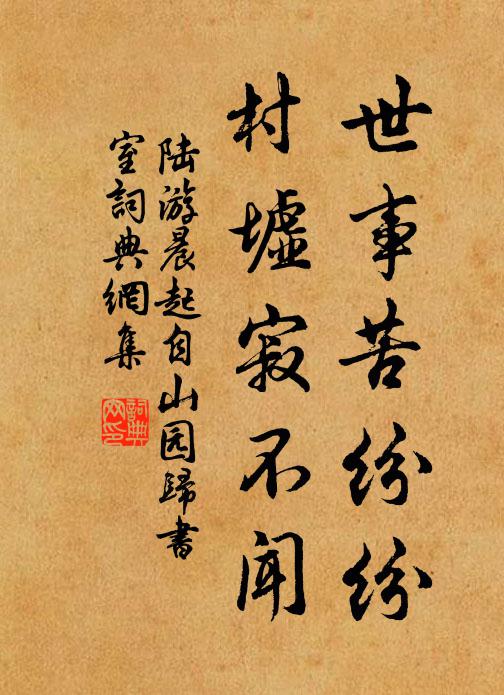 世事苦纷纷
村墟寂不闻
陆游晨起自山园歸書
室詞典網集
詞典网印